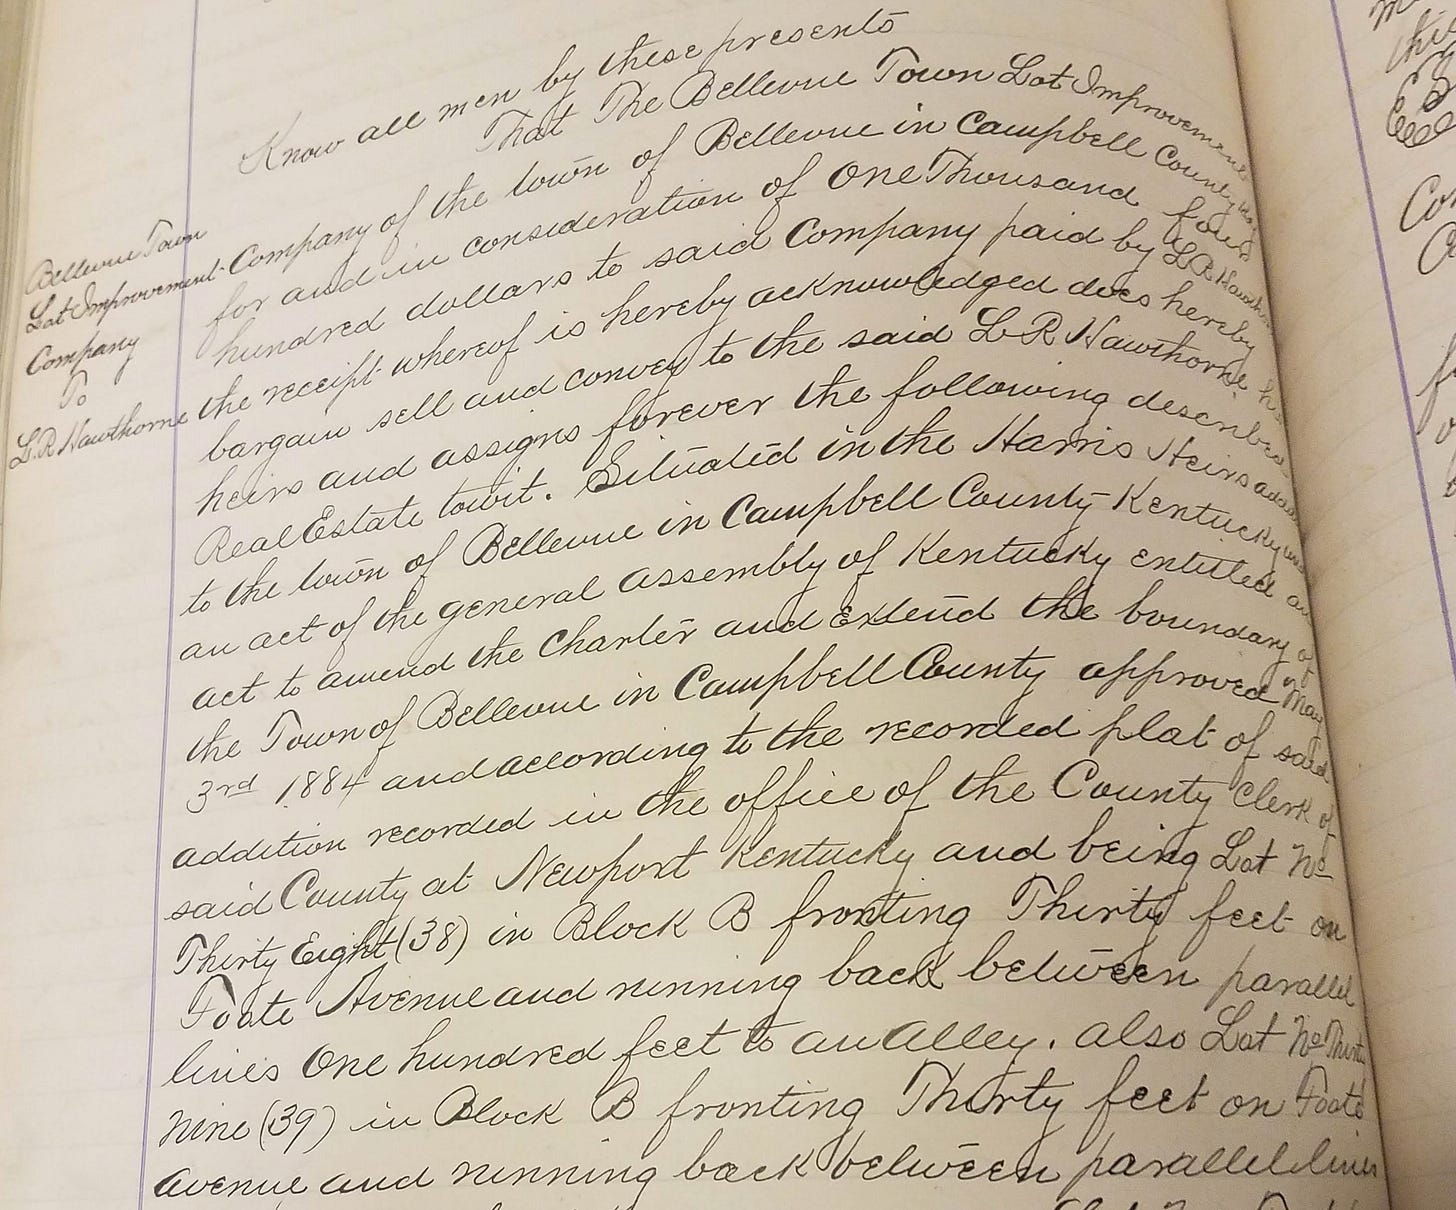 Know all men by these presents
That The Bellevue Town Lot Improvement
Company of the town of Bellevue in Campbell County
for and in consideration of One Thousand four
hundred dollars to said Company paid by L R Hawthorne
the receipt whereof is hereby acknowledged does hereby
bargain sell and convey to the said L R Hawthorne his
heirs and assigns forever the following described
Real Estate towit. Situated in the Harris Heirs
to the town of Bellevue in Campbell County Kentucky
an act of the general assembly of Kentucky entitled an
act to amend the Charter and Extend the boundary of
the Town of Bellevue in Campbell County approved May
3rd 1884 and according to the recorded plat of said
addition recorded in the office of the County Clerk of
said County at Newport Kentucky and being Lot No
Thirty Eight (38) in Block B fronting Thirty feet on
Foote Avenue and running back between parallel
lines One hundred feet to an Alley. also Lot No Thirty
Nine (39) in Block B fronting Thirty feet on Foote
Avenue and running back between parallel lines
Bellevue Town
Lot Improvement
Company
To
L.R Hawthorne